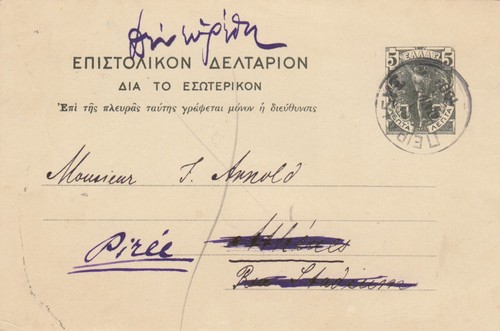 Δὲν εὑρέθη
ΕΠΙΣΤΟΛΙΚΟΝ ΔΕΛΤΑΡΙΟΝ
ΔΙΑ ΤΟ ΕΣΩΤΕΡΙΚΟΝ
Ἐπὶ τῆς πλευρᾶς ταύτης γράφεται μόνον ἡ διεύθυνσις
5 ΕΛΛΑΣ 5
ΛΕΠΤΑ ΛΕΠΤΑ
Monsieur J. Arnold
Athènes
Pirée
Rue Stadium